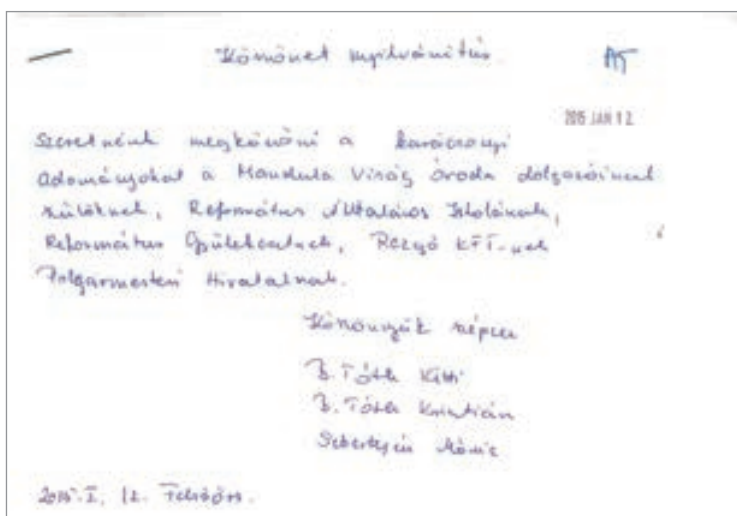 Köszönet nyilvánítás
2015 JAN 12.
Szeretnénk megköszönni a karácsonyi
adományokat a Mandula Virág Óvoda dolgozóinak
szülőknek, Református Általános Iskolának,
Református Gyülekezetnek, Rezgő KFT-nek
Polgármesteri Hivatalnak.
Köszönjük szépen
B. Tóth Kitti
B. Tóth Krisztián
Mónic
2015. I. 12. Felsőörs.